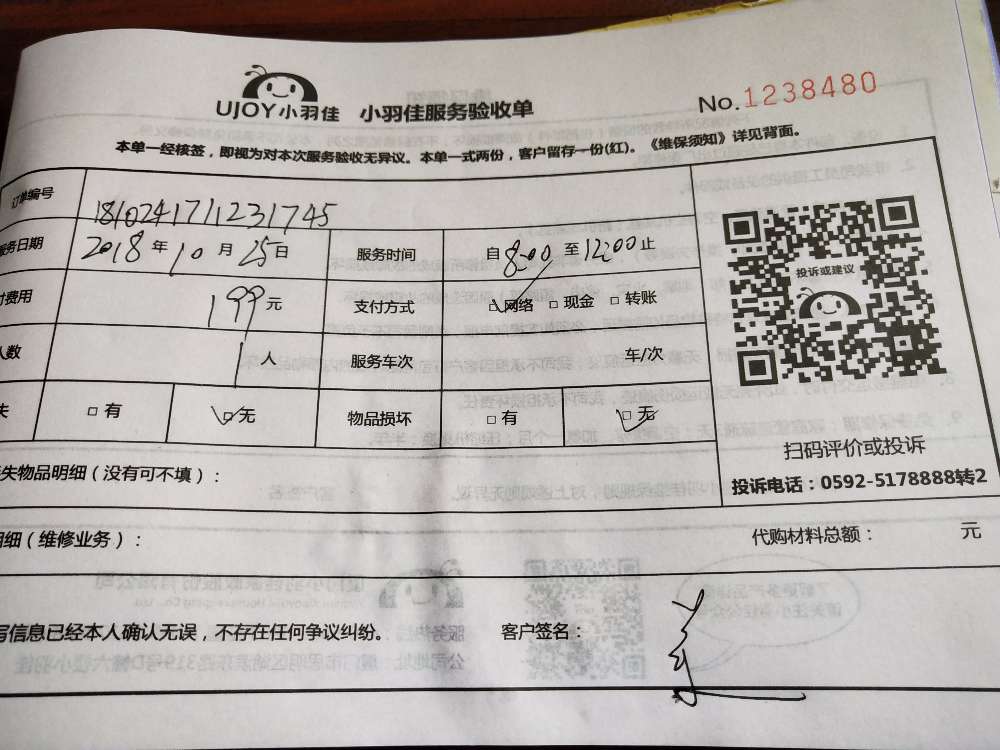 UJOY小羽佳 小羽佳服务验收单 No.1238480
本单一经核签，即视为对本次服务验收无异议。本单一式两份，客户留存一份(红)。《维保须知》详见背面。
订单编号 1810241711231745
服务日期 2018年10月25日 服务时间 自8:00至12:00止
付费用 199元 支付方式 ☑网络 □现金 □转账
人数 1人 服务车次 车/次
失 □有 ☑无 物品损坏 □有 ☑无
投诉或建议
扫码评价或投诉
投诉电话：0592-5178888转2
失物品明细（没有可不填）：
明细（维修业务）： 代购材料总额： 元
写信息已经本人确认无误，不存在任何争议纠纷。 客户签名：